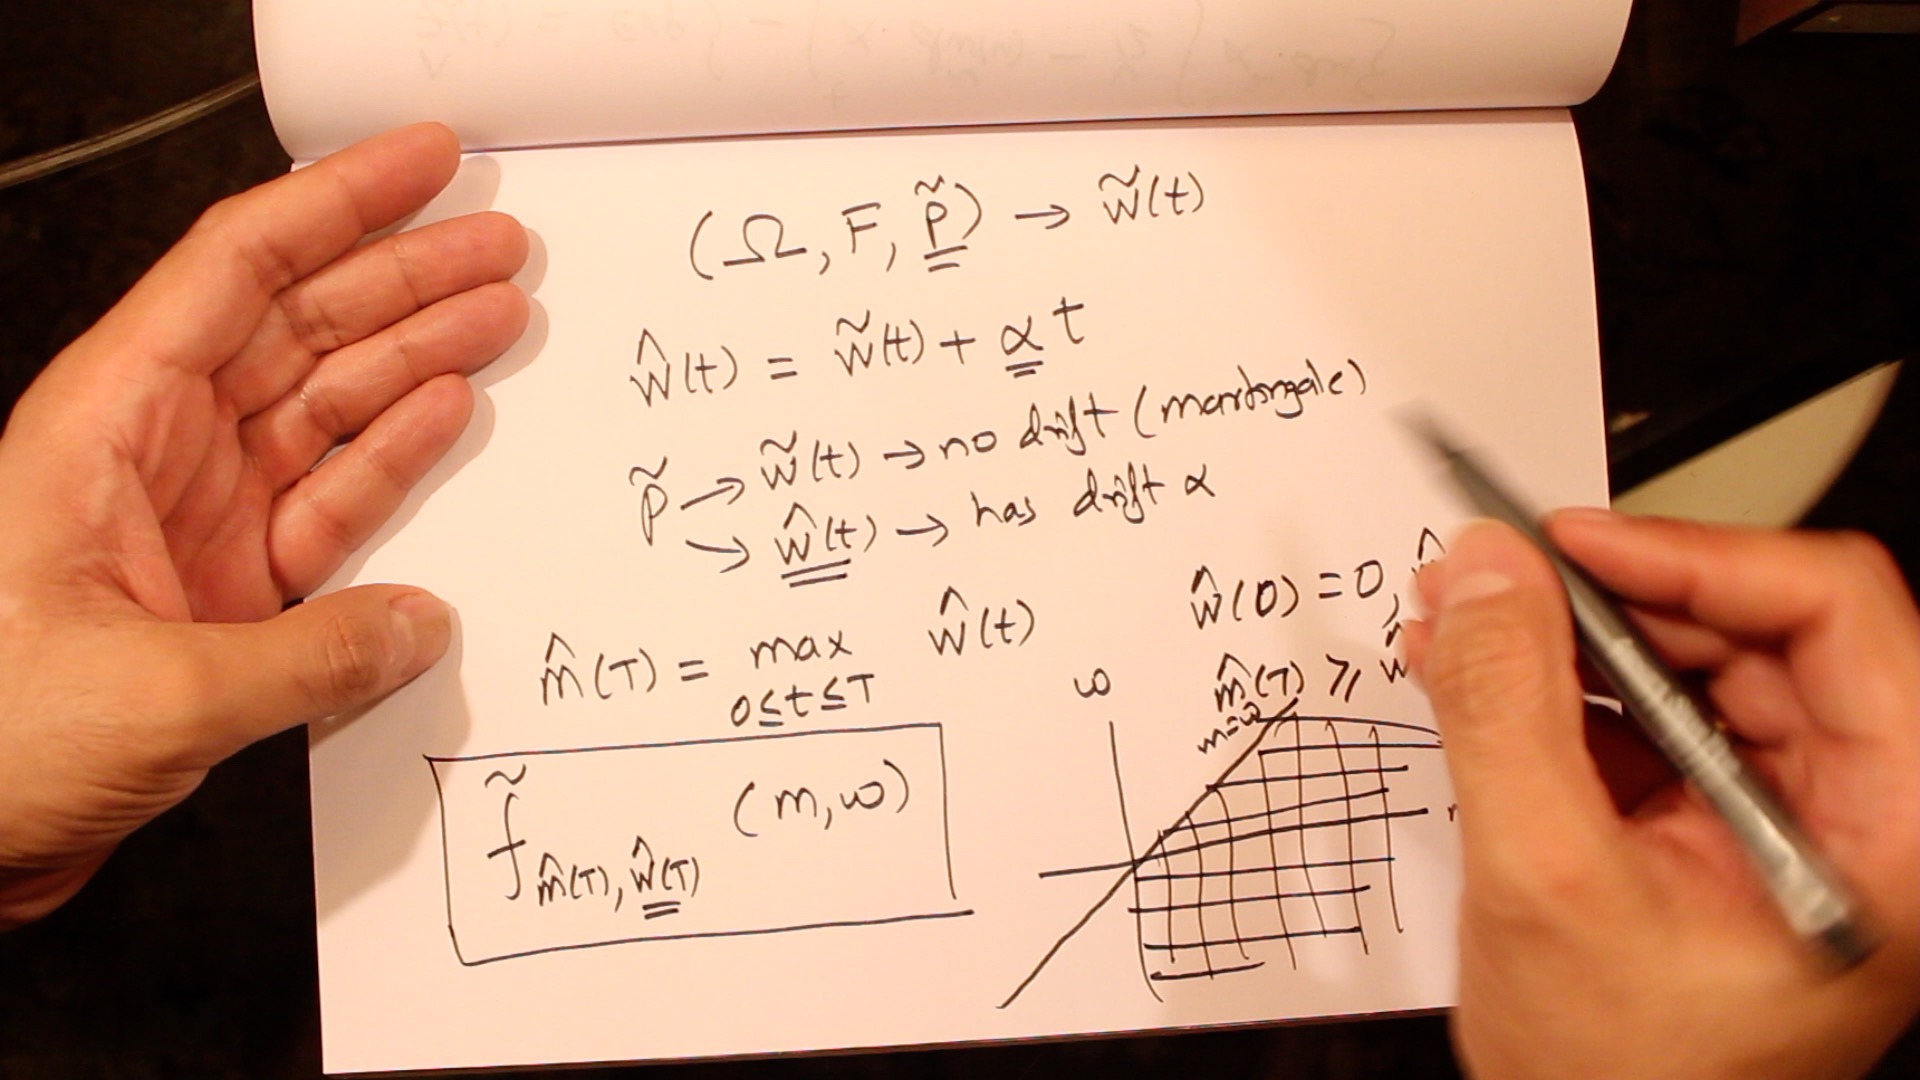 (Ω, F, P̃) → W̃(t)
Ŵ(t) = W̃(t) + α t
P̃ → W̃(t) → no drift (martingale)
→ Ŵ(t) → has drift α
Ŵ(0) = 0,
m̂(T) = max Ŵ(t)
0≤t≤T
m̂(T) ⩾ Ŵ
ω
m=ω
f̃ m̂(T), Ŵ(T) (m, ω)